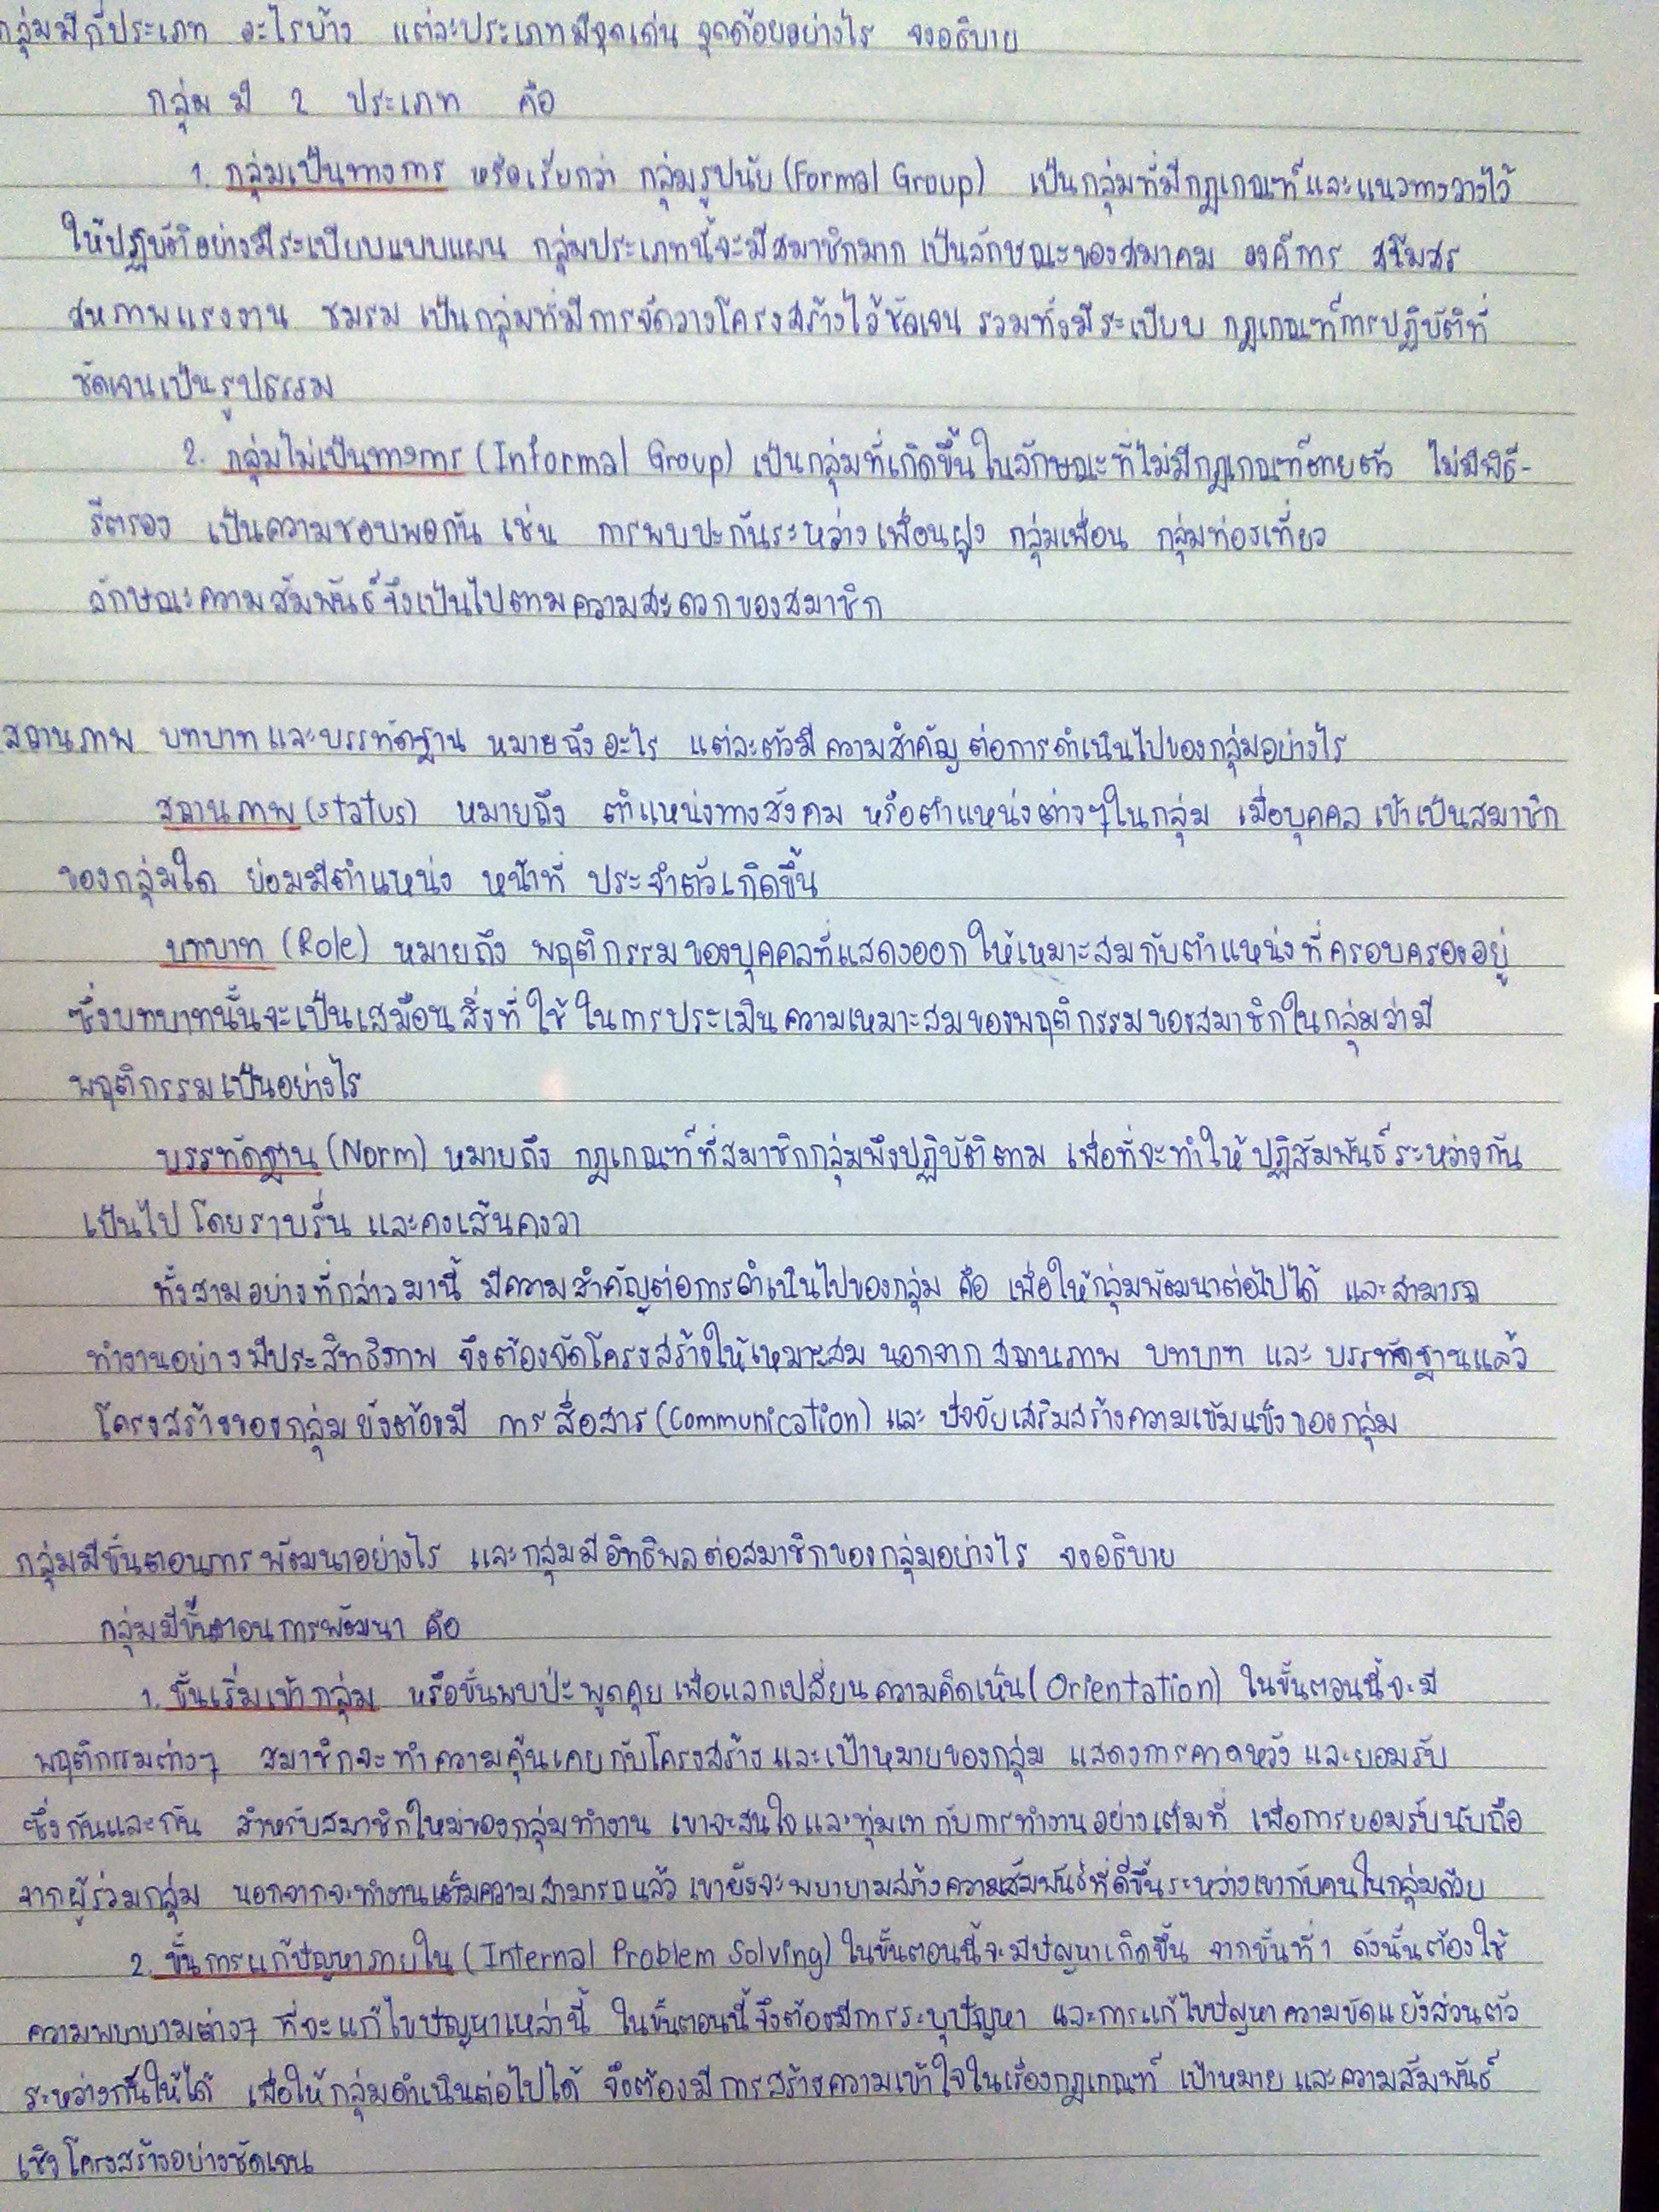 กลุ่มมีกี่ประเภท อะไรบ้าง แต่ละประเภทมีจุดเด่น จุดด้อยอย่างไร จงอธิบาย
กลุ่ม มี 2 ประเภท คือ
1. กลุ่มเป็นทางการ หรือเรียกว่า กลุ่มรูปนัย (Formal Group) เป็นกลุ่มที่มีกฎเกณฑ์และแนวทางวางไว้
ให้ปฏิบัติอย่างมีระเบียบแบบแผน กลุ่มประเภทนี้จะมีสมาชิกมาก เป็นลักษณะของสมาคม องค์การ สโมสร
สหภาพแรงงาน ชมรม เป็นกลุ่มที่มีการจัดวางโครงสร้างไว้ชัดเจน รวมทั้งมีระเบียบ กฎเกณฑ์การปฏิบัติที่
ชัดเจนเป็นรูปธรรม
2. กลุ่มไม่เป็นทางการ (Informal Group) เป็นกลุ่มที่เกิดขึ้นในลักษณะที่ไม่มีกฎเกณฑ์ตายตัว ไม่มีพิธี-
รีตรอง เป็นความชอบพอกัน เช่น การพบปะกันระหว่างเพื่อนฝูง กลุ่มเพื่อน กลุ่มท่องเที่ยว
ลักษณะความสัมพันธ์จึงเป็นไปตามความสะดวกของสมาชิก
สถานภาพ บทบาท และบรรทัดฐาน หมายถึงอะไร แต่ละตัวมีความสำคัญต่อการดำเนินไปของกลุ่มอย่างไร
สถานภาพ (status) หมายถึง ตำแหน่งทางสังคม หรือตำแหน่งต่างๆในกลุ่ม เมื่อบุคคลเข้าเป็นสมาชิก
ของกลุ่มใด ย่อมมีตำแหน่ง หน้าที่ ประจำตัวเกิดขึ้น
บทบาท (Role) หมายถึง พฤติกรรมของบุคคลที่แสดงออกให้เหมาะสมกับตำแหน่งที่ครอบครองอยู่
ซึ่งบทบาทนั้นจะเป็นเสมือนสิ่งที่ใช้ในการประเมินความเหมาะสมของพฤติกรรมของสมาชิกในกลุ่มว่ามี
พฤติกรรมเป็นอย่างไร
บรรทัดฐาน (Norm) หมายถึง กฎเกณฑ์ที่สมาชิกกลุ่มพึงปฏิบัติตาม เพื่อที่จะทำให้ปฏิสัมพันธ์ระหว่างกัน
เป็นไปโดยราบรื่น และคงเส้นคงวา
ทั้งสามอย่างที่กล่าวมานี้ มีความสำคัญต่อการดำเนินไปของกลุ่ม คือ เพื่อให้กลุ่มพัฒนาต่อไปได้ และสามารถ
ทำงานอย่างมีประสิทธิภาพ จึงต้องจัดโครงสร้างให้เหมาะสม นอกจาก สถานภาพ บทบาท และ บรรทัดฐานแล้ว
โครงสร้างของกลุ่มยังต้องมี การสื่อสาร (Communication) และ ปัจจัยเสริมสร้างความเข้มแข็งของกลุ่ม
กลุ่มมีขั้นตอนการพัฒนาอย่างไร และกลุ่มมีอิทธิพลต่อสมาชิกของกลุ่มอย่างไร จงอธิบาย
กลุ่มมีขั้นตอนการพัฒนา คือ
1. ขั้นเริ่มเข้ากลุ่ม หรือขั้นพบปะ พูดคุย เพื่อแลกเปลี่ยนความคิดเห็น (Orientation) ในขั้นตอนนี้จะมี
พฤติกรรมต่างๆ สมาชิกจะทำความคุ้นเคยกับโครงสร้างและเป้าหมายของกลุ่ม แสดงการคาดหวัง และยอมรับ
ซึ่งกันและกัน สำหรับสมาชิกใหม่ของกลุ่มทำงาน เขาจะสนใจและทุ่มเทกับการทำงานอย่างเต็มที่ เพื่อการยอมรับนับถือ
จากผู้ร่วมกลุ่ม นอกจากจะทำงานเต็มความสามารถแล้ว เขายังจะพยายามสร้างความสัมพันธ์ที่ดีขึ้นระหว่างเขากับคนในกลุ่มด้วย
2. ขั้นการแก้ปัญหาภายใน (Internal Problem Solving) ในขั้นตอนนี้จะมีปัญหาเกิดขึ้น จากขั้นที่ 1 ดังนั้นต้องใช้
ความพยายามต่างๆ ที่จะแก้ไขปัญหาเหล่านี้ ในขั้นตอนนี้จึงต้องมีการระบุปัญหา และการแก้ไขปัญหาความขัดแย้งส่วนตัว
ระหว่างกันให้ได้ เพื่อให้กลุ่มดำเนินต่อไปได้ จึงต้องมีการสร้างความเข้าใจในเรื่องกฎเกณฑ์ เป้าหมาย และความสัมพันธ์
เชิงโครงสร้างอย่างชัดเจน